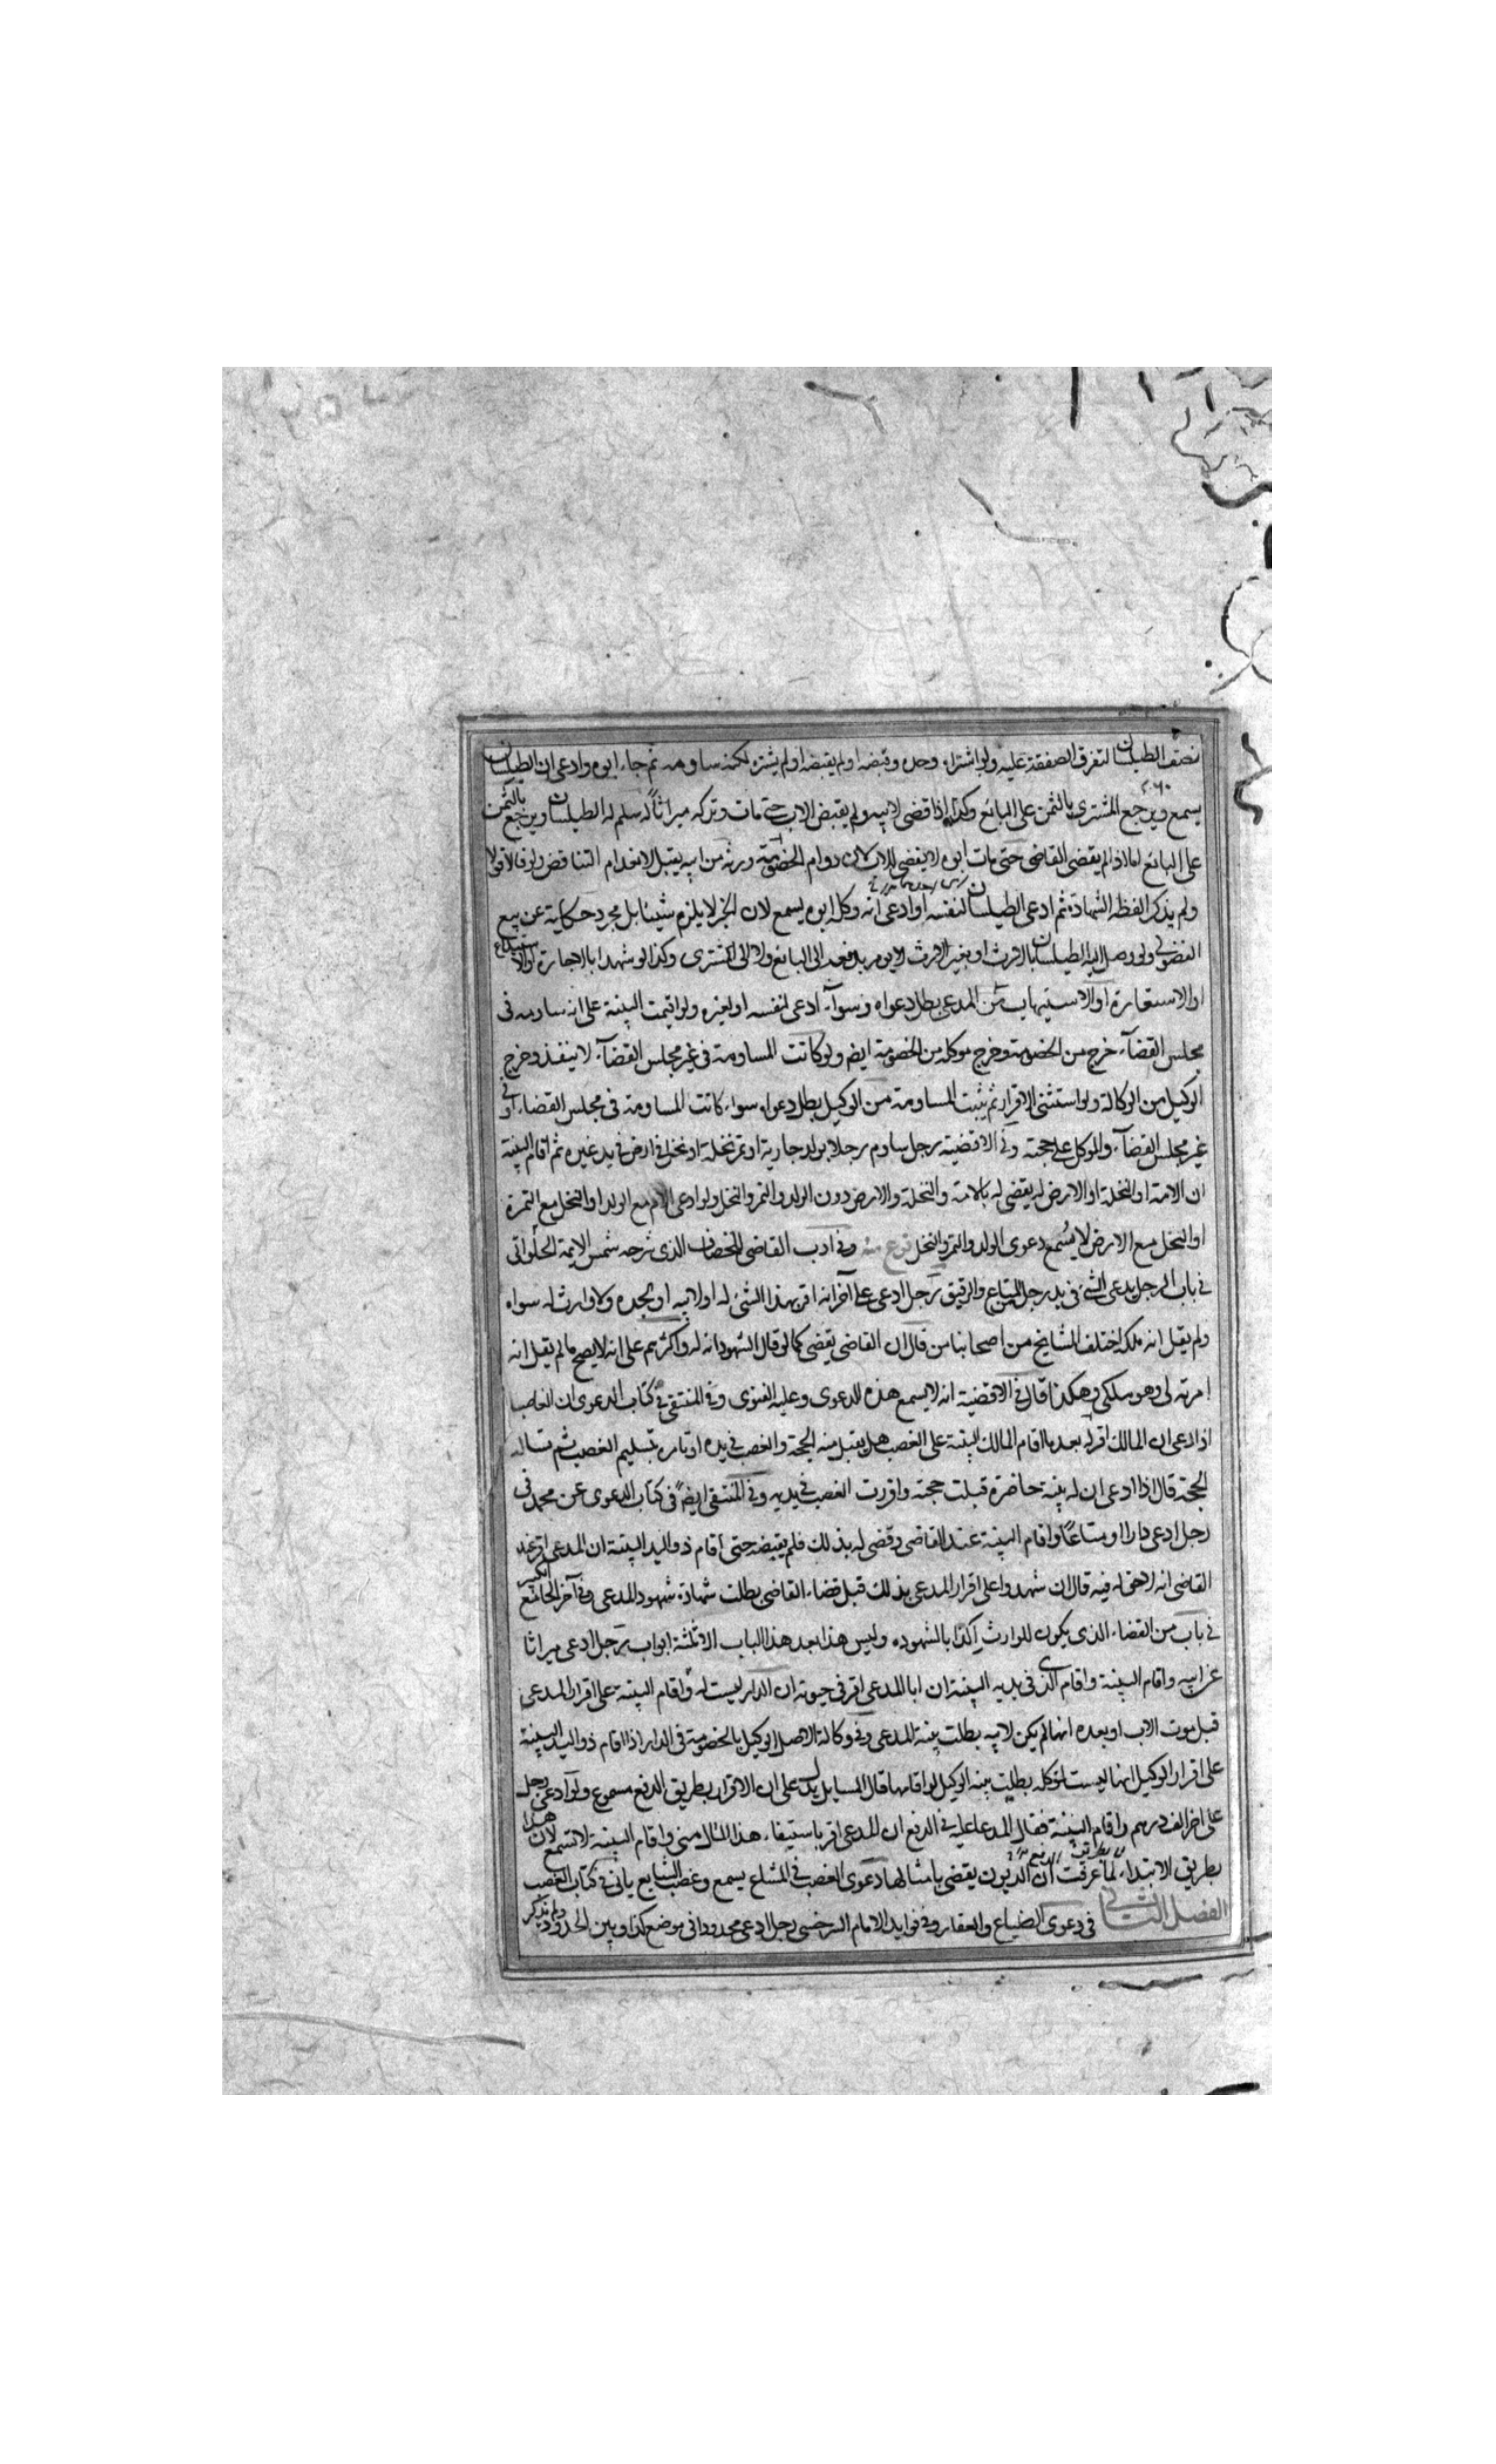 نصف الطيلسان لتفرق الصفقة عليه ولو اشتراه وحده وقبضه او لم يقبضه او لم يشتره لكنه ساومه ثم جاء ابوه وادعى ان الطيلسان
يسمع ويرجع المشترى بالثمن على البائع وكذا اذا قضى لابيه ولم يقبض الاب حتى مات وتركه ميراثا له سلم له الطيلسان ويرجع بالثمن
على البائع اما اذا لم يقضى القاضى حتى مات ابوه لا يقضى للابن دوام الخصومة ورثه من ابيه يقبل لانعدام التناقض ولو قالا قولا
ولم يذكر الفظه الشهادة ثم ادعى الطيلسان لنفسه او ادعى انه وكل ابوه يسمع لان الخبر لا يلزم شيئا بل مجرد حكاية عن بيع
الفضولى ولو وصل اليه الطيلسان بالارث او بغير الارث لا يومر بدفعه الى البائع ولا الى المشترى وكذا لو شهدا بالاجارة او الاستيداع
او الاستعارة او الاستيهاب من المدعى بطل دعواه وسواء ادعى لنفسه او لغيره ولو اقيمت البينة على انه ساومه فى
مجلس القضآء خرج من الخصومة وخرج موكله من الخصومة ايضا ولو كانت المساومة فى غير مجلس القضآء لا ينفذ وخرج
الوكيل من الوكالة ولو استثنى الاقرار ثم يثبت المساومة من الوكيل بطل دعواه سواء كانت المساومة فى مجلس القضاء او فى
غير مجلس القضآء والموكل على حجته وفى الاقضية رجل ساوم رجلا بولد جارية او تمر نخلة او نخل فى ارض فى يد غيره ثم اقام البينة
ان الامة او النخلة او الارض له يقضى له بالامة والنخلة والارض دون الولد والتمر والنخل ولو ادعى الام مع الولد او النخل مع التمرة
او النخل مع الارض لا يسمع دعوى الولد والتمر والنخل فرع منه وفى ادب القاضى للخصاف الذى شرحه شمس الايمة الحلوانى
فى باب الرجل يدعى الشئ فى يد رجل المتاع والرقيق رجل ادعى على آخر انه اقر بهذا الشئ له او لابيه او لجده ولا وارث له سواه
ولم يقل انه ملكه اختلف المشايخ من اصحابنا من قال ان القاضى يقضى كما لو قال الشهود انه له واكثرهم على انه لا يصح ما لم يقل انه
اقر به لى وهو ملكى وهكذا قال فى الاقضية انه لا يسمع هذه الدعوى وعليه الفتوى وفى المنتقى فى كتاب الدعوى ان الغاصب
اذا ادعى ان المالك اقر له بعد ما اقام المالك البينة على الغصب هل يقبل منه الحجة والغصب فى يده او تامره بتسليم الغصب ثم تساله
الحجة قال اذا ادعى ان له بينة حاضرة قبلت حجته واقررت الغصب فى يديه وفى المنتقى ايضا فى كتاب الدعوى عن محمد فى
رجل ادعى دارا او متاعا واقام البينة عند القاضى وقضى له بذلك فلم يقبضه حتى اقام ذو اليد البينة ان المدعى اقر عند
القاضى انه لا حق له فيه قال ان شهدوا على اقرار المدعى بذلك قبل قضاء القاضى بطلت شهادة شهود المدعى وفى آخر الجامع الكبير
فى باب من القضاء الذى يكون للوارث اكذابا لشهوده وليس هذا بعد هذا الباب الا ثلثة ابواب رجل ادعى ميراثا
عن ابيه واقام البينة واقام الذى فى يديه البينة ان ابا المدعى اقر فى حيوته ان الدار ليست له او اقام البينة على اقرار المدعى
قبل موت الاب او بعده انها لم يكن لابيه بطلت بينة المدعى وفى وكالة الاصل الوكيل بالخصومة فى الدار اذا اقام ذو اليد البينة
على اقرار الوكيل انها ليست لموكله بطلت بينه الوكيل لو اقامها قال المسايل يدل على ان الاقرار بطريق الدفع مسموع ولو ادعى رجل
على اخر الف درهم واقام البينة فقال المدعا عليه فى الدفع ان المدعى اقر باستيفاء هذا المال منى واقام البينة لا تسمع لان هذا
بطريق الابتداء لما عرفت ان الديون يقضى بامثالها دعوى الغصب فى المشاع يسمع وغصب الشايع ياتى فى كتاب الغصب
الفصل الثانى فى دعوى الضياع والعقار وفى فوايد الامام السرخسى رجل ادعى محدودا فى موضع كذا وبين الحدود ولم يذكر